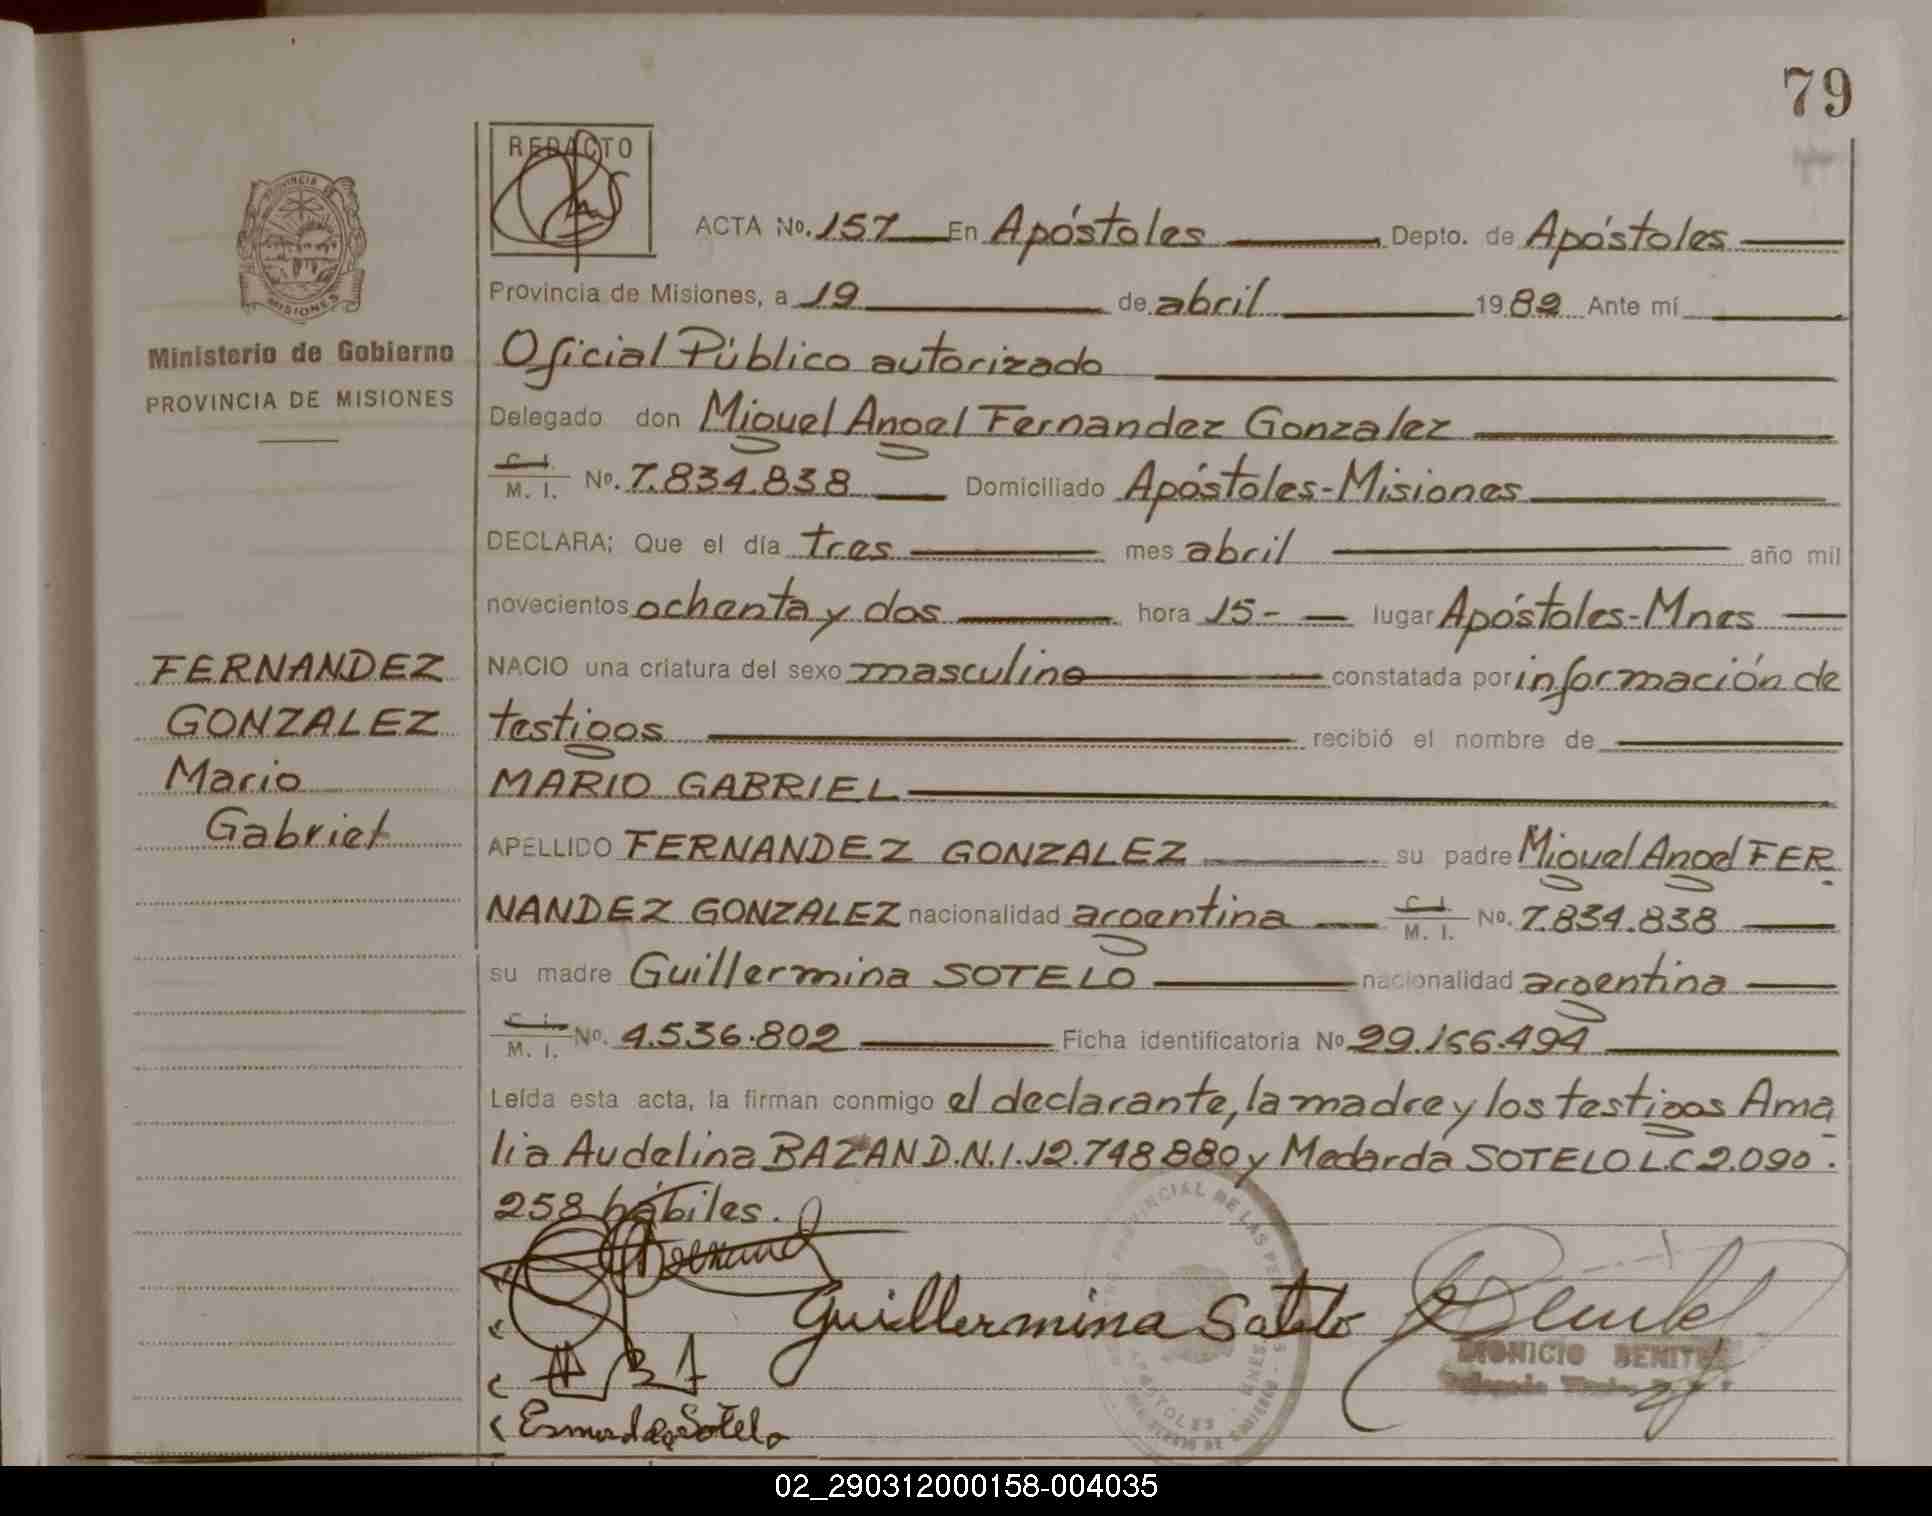 79
REDACTO
PROVINCIA DE
MISIONES
Ministerio de Gobierno
PROVINCIA DE MISIONES
FERNANDEZ
GONZALEZ
Mario
Gabriel
ACTA No. 157 En Apóstoles Depto. de Apóstoles
Provincia de Misiones, a 19 de abril 1982 Ante mí
Oficial Público autorizado
Delegado don Miguel Angel Fernandez Gonzalez
C. I. M. I. No. 7.834.838 Domiciliado Apóstoles-Misiones
DECLARA; Que el día tres mes abril año mil
novecientos ochenta y dos hora 15- lugar Apóstoles-Mnes
NACIO una criatura del sexo masculino constatada por información de
testigos recibió el nombre de
MARIO GABRIEL
APELLIDO FERNANDEZ GONZALEZ su padre Miguel Angel FER
NANDEZ GONZALEZ nacionalidad argentina C. I. M. I. No. 7.834.838
su madre Guillermina SOTELO nacionalidad argentina
C. I. M. I. No. 4.536.802 Ficha identificatoria No 29.156.494
Leída esta acta, la firman conmigo el declarante, la madre y los testigos Ama
lia Audelina BAZAN D.N.I. 12.748.880 y Medarda SOTELO L.C 2.090.
258 hábiles.
Guillermina Sotelo
DIONICIO BENITEZ
Sotelo
APOSTOLES
02_290312000158-004035